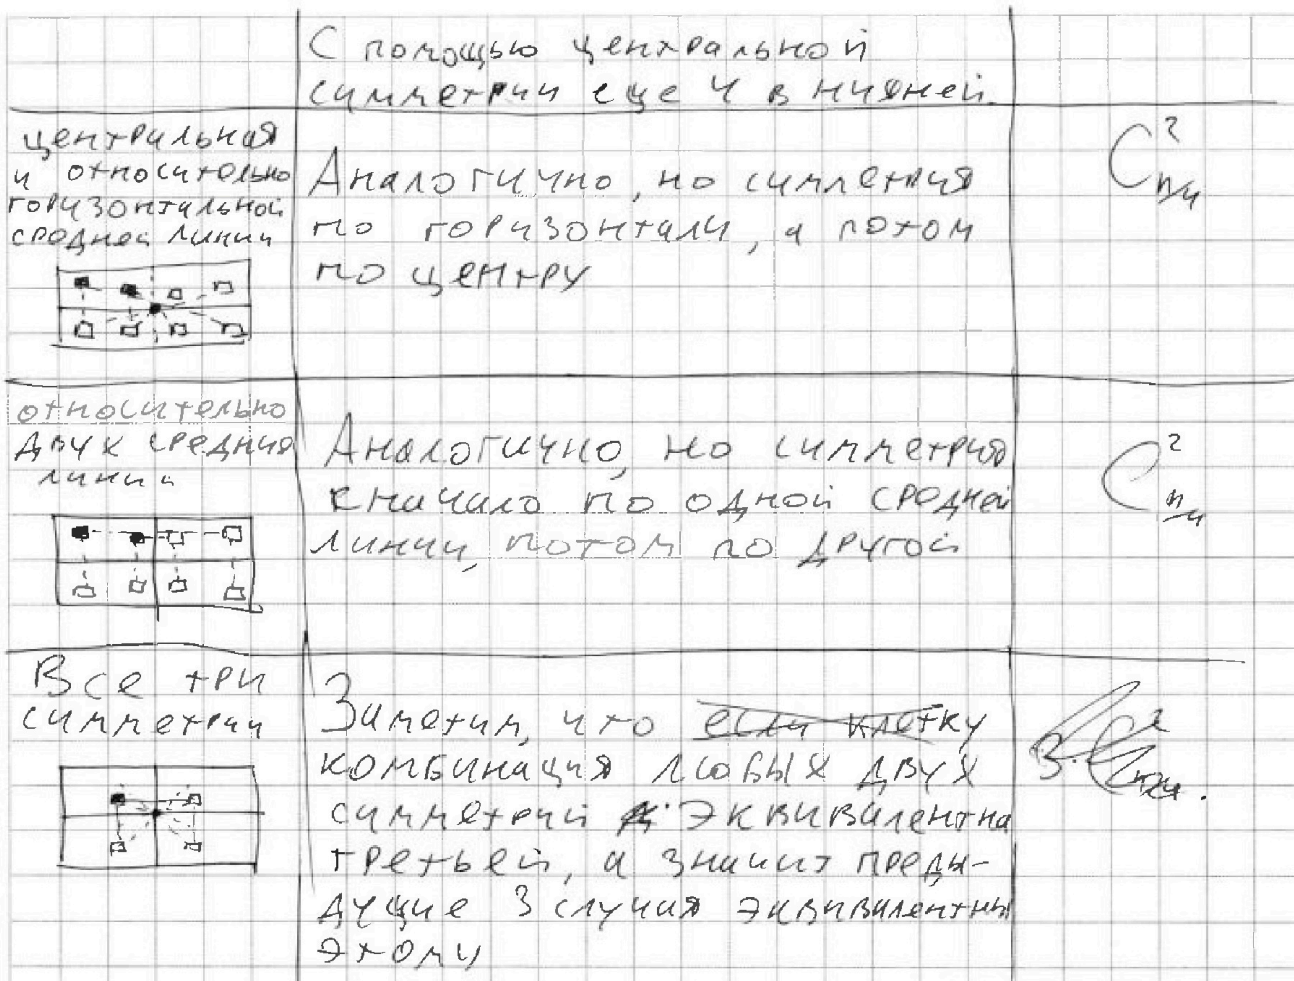 С помощью центральной
симметрии еще 4 в нижней.
центральная
и относительно
горизонтальной
средней линии
Аналогично, но симметрия
по горизонтали, а потом
по центру
C²n/4
относительно
двух средних
линий
Аналогично, но симметрия
сначало по одной средней
линии, потом по другой
C²n/4
Все три
симметрии
Заметим, что если клетку
комбинация любых двух
симметрий эквивалентна
третьей, а значит преды-
дущие 3 случая эквивалентны
этому